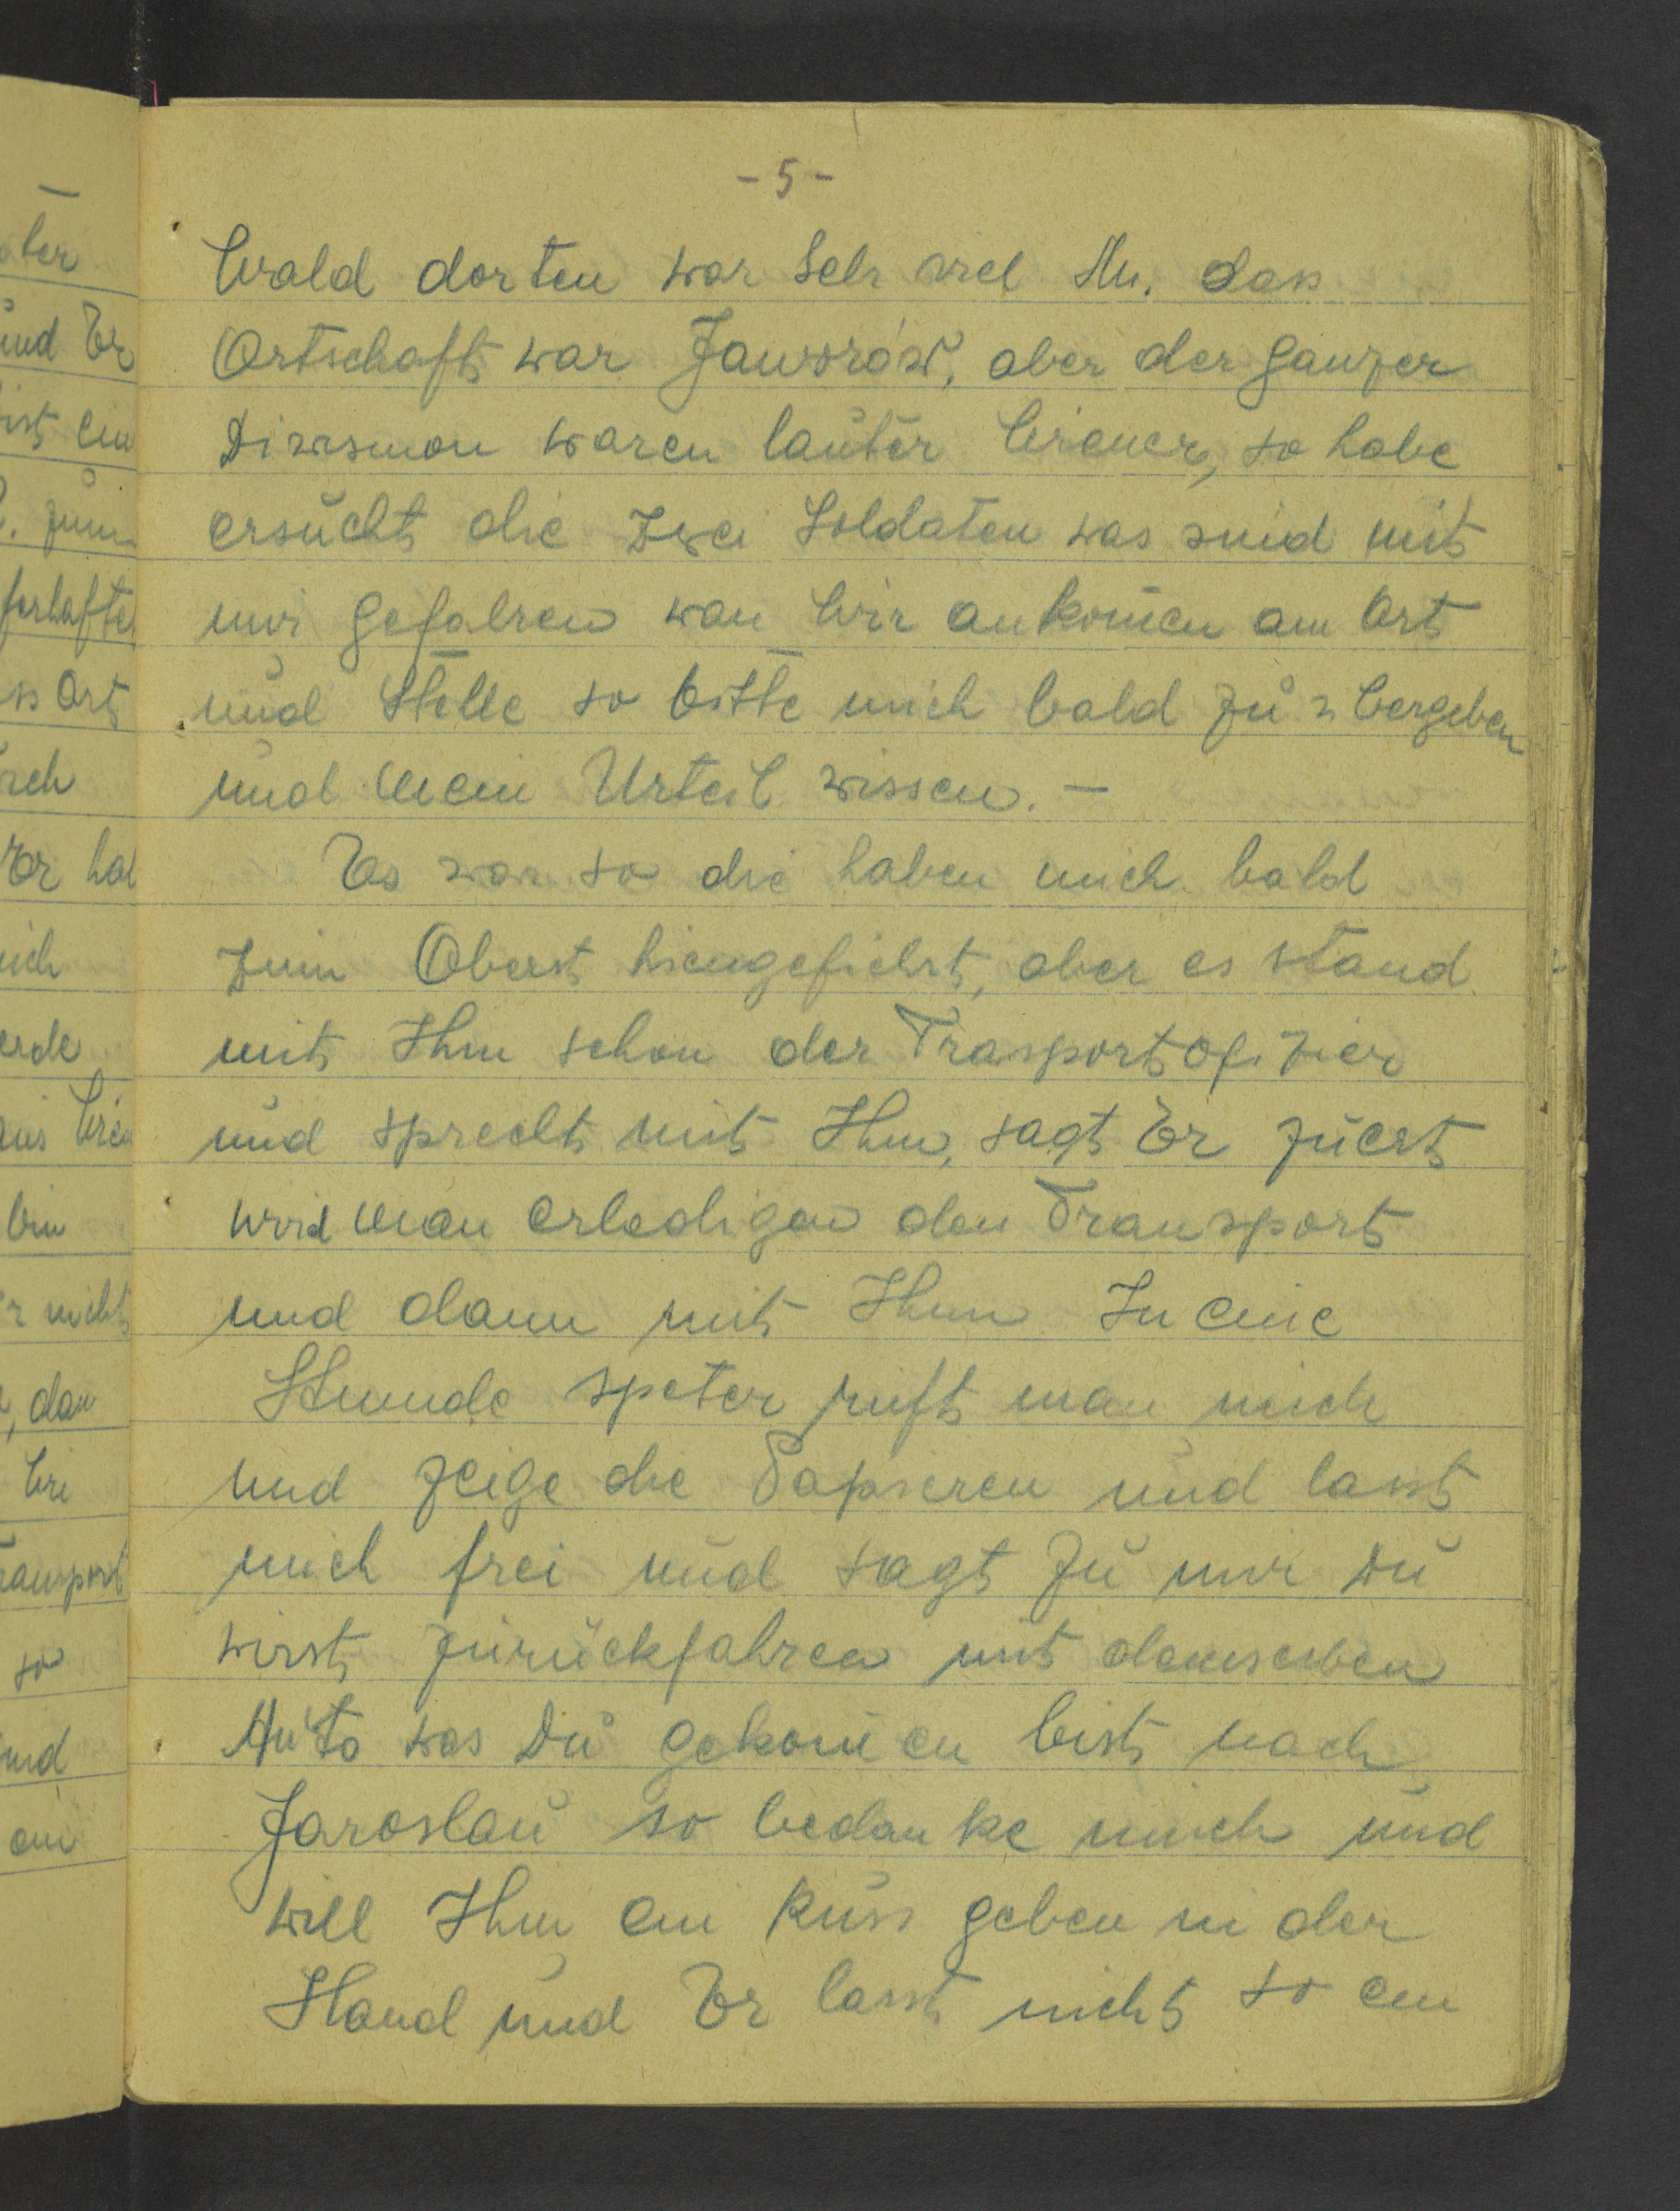 - 5 -
Wald dorten war Sehr viel Mu. dass
Ortschaft war Jaworów, aber der ganzer
Diwismon waren lauter Wiener, so habe
ersucht die zwei Soldaten was sind mit
mir gefahren wan Wir ankomen am Ort
und Stelle so bitte mich bald zu
und mein Urteil wissen. -
Es war so die haben mich bald
zum Oberst hiengefiehrt, aber es stand
mit Ihm schon der Trasportofizier
und sprecht mit Ihm, sagt Er zuerst
wird man erledigen den Transport
und dann mit Ihm In eine
Stunde speter ruft man mich
und zeige die Papieren und lasst
mich frei und sagt zu mir Du
wirst zurückfahren mit demselben
Auto was Du gekomen bist nach
Jaroslau so bedanke mich und
will Ihm ein Kuss geben in der
Hand und Er lasst nicht so ein
ater
und Er
ist ein
zum
ferhafte
ss Ort
Er hat
erde
aus Wien
bin
r nicht
, dan
Wi
ransport
so
und